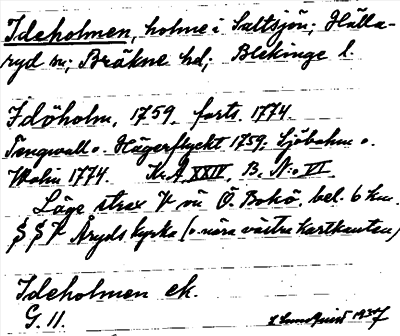 Ideholmen, holme i Saltsjön; Hälla-
ryd sn; Bräkne hd; Blekinge l.
Idöholm, 1759. forts. 1774.
Tengwall o. Hägerflyckt 1759. Sjöbohm o.
Wolin 1774. K. A. XXIV, B, N:o VI.
Läge strax V om Ö. Bokö, bel. 6 km.
S S V Åryds kyrka (o. nära västra kartkanten)
Ideholmen ek.
G. 11.
1937